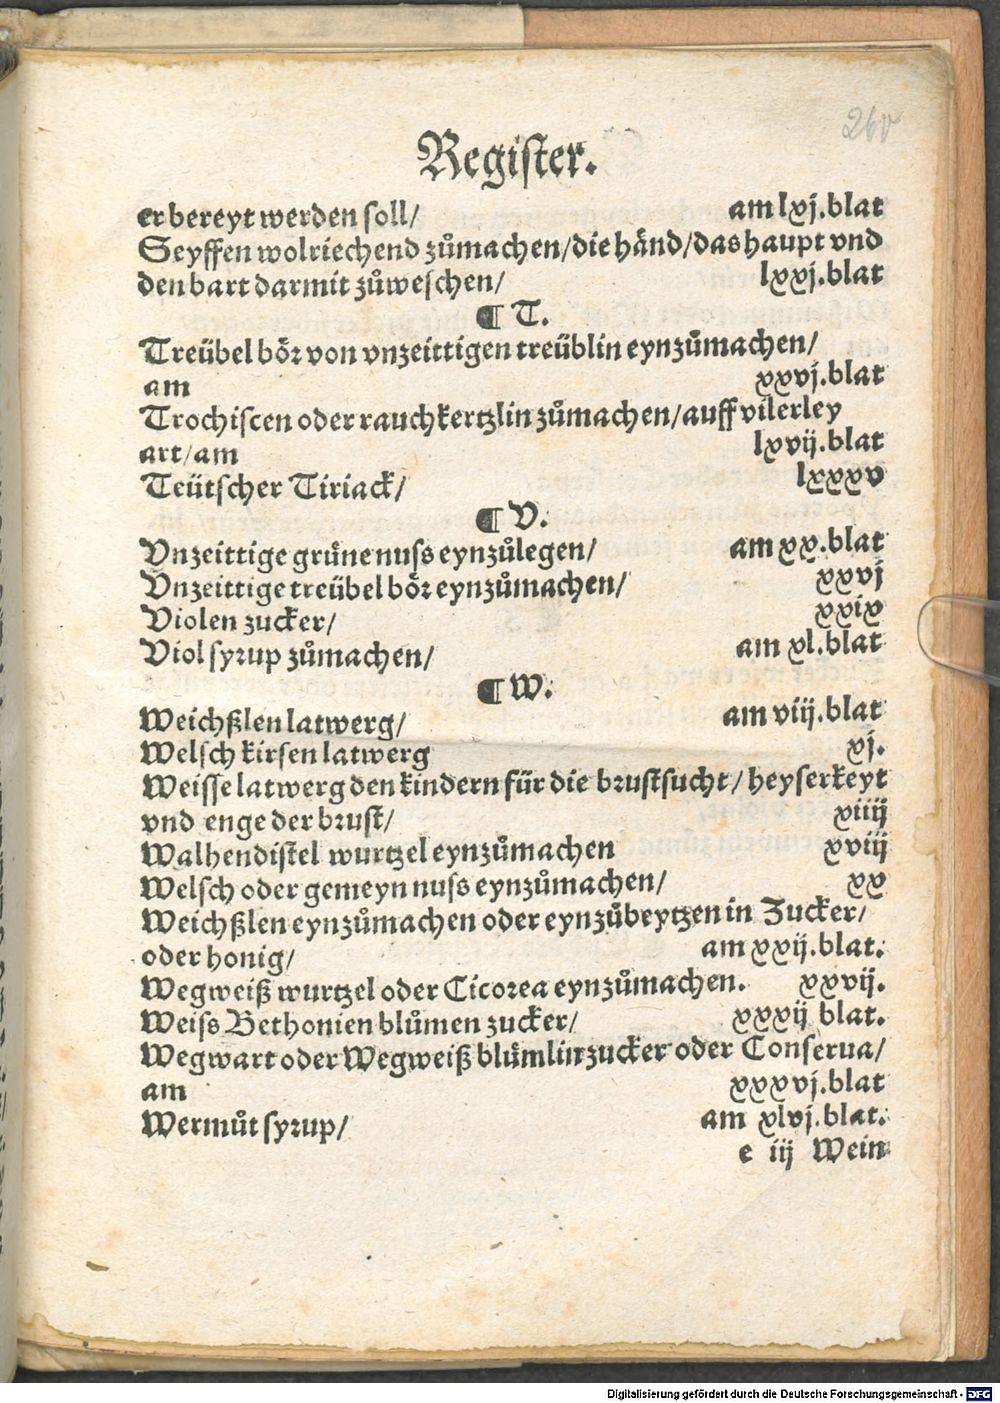 260
Register.
er bereyt werden soll/ am lxj.blat
Seyffen wolriechend zůmachen/die händ/das haupt vnd
den bart darmit zůweschen/ lxxj.blat
¶ T.
Treübel bör von vnzeittigen treüblin eynzůmachen/
am xxvj.blat
Trochiscen oder rauchkertzlin zůmachen/auff vilerley
art/am lxvij.blat
Teütscher Tiriack/ lxxxv
¶ V.
Vnzeittige grüne nuss eynzůlegen/ am xx.blat
Vnzeittige treübel bör eynzůmachen/ xxvj
Violen zucker/ xxix
Viol syrup zůmachen/ am xl.blat
¶ W.
Weichßlen latwerg/ am viij.blat
Welsch kirsen latwerg xj.
Weisse latwerg den kindern für die brustsucht/heyserkeyt
vnd enge der brust/ xiiij
Walhendistel wurtzel eynzůmachen xviij
Welsch oder gemeyn nuss eynzůmachen/ xx
Weichßlen eynzůmachen oder eynzůbeytzen in Zucker/
oder honig/ am xxij.blat.
Wegweiß wurtzel oder Cicorea eynzůmachen. xxvij.
Weiss Bethonien blůmen zucker/ xxxij blat.
Wegwart oder Wegweiß blůmlin zucker oder Conserua/
am xxxvj.blat
Wermůt syrup/ am xlvj.blat.
e iij Wein
Digitalisierung gefördert durch die Deutsche Forschungsgemeinschaft - DFG